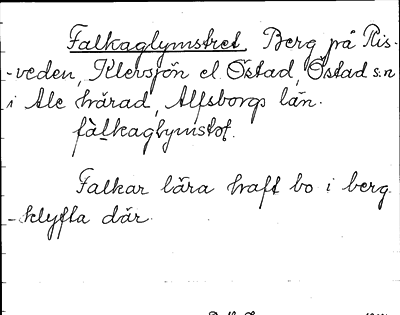 Falkaglymstret, Berg på Ris-
-veden, Klevsjön el. Östad, Östad s:n
i Ale härad, Älfsborgs län.
fàlkaglymstǝt.
Falkar lära haft bo i berg-
-klyfta där.